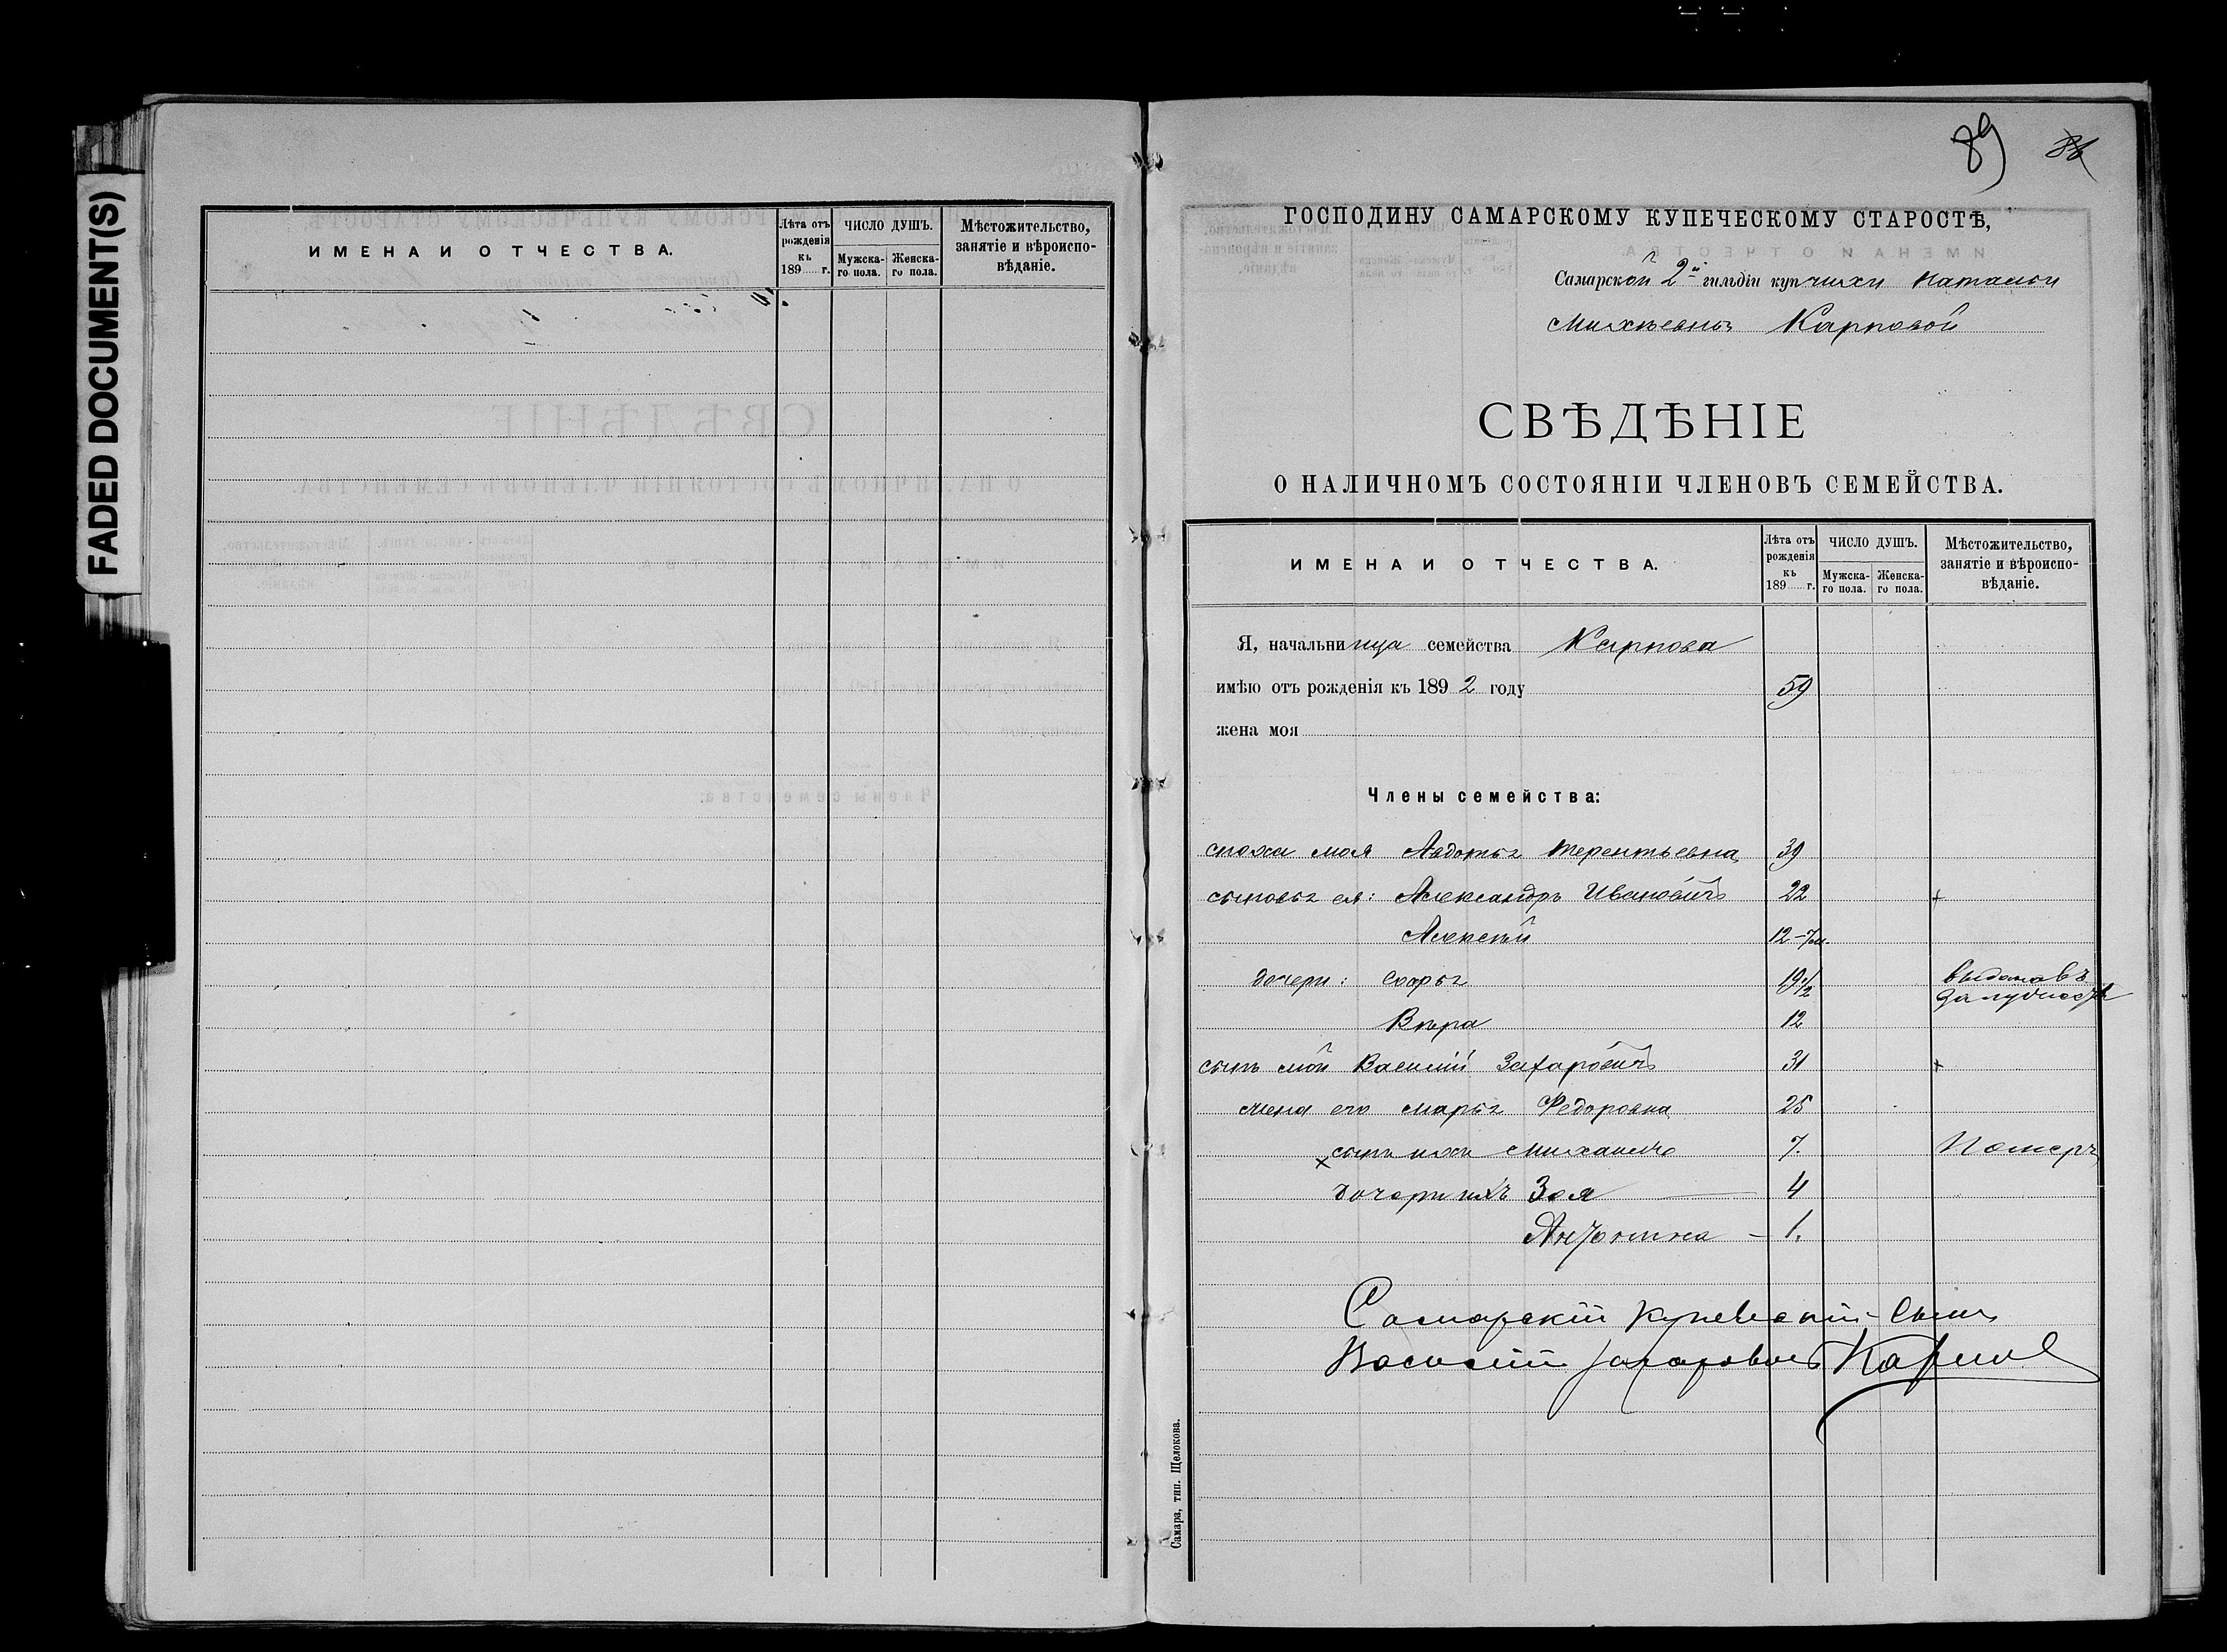 FADED DOCUMENT(S)
ИМЕНА И ОТЧЕСТВА.
Лѣта отъ рожденія къ 189 г.
ЧИСЛО ДУШЪ.
Мужска-го пола.
Женска-го пола.
Мѣстожительство, занятіе и вѣроиспо-вѣданіе.
89
ГОСПОДИНУ САМАРСКОМУ КУПЕЧЕСКОМУ СТАРОСТѢ,
Самарской 2й гильдіи купчихи Натальи
Михѣевны Карповой
СВѢДѢНІЕ
О НАЛИЧНОМЪ СОСТОЯНІИ ЧЛЕНОВЪ СЕМЕЙСТВА.
ИМЕНА И ОТЧЕСТВА.
Лѣта отъ рожденія къ 189 г.
ЧИСЛО ДУШЪ.
Мужска-го пола.
Женска-го пола.
Мѣстожительство, занятіе и вѣроиспо-вѣданіе.
Я, начальница семейства Карпова
имѣю отъ рожденія къ 1892 году 59
жена моя
Члены семейства:
сноха моя Авдотья Терентьевна 39
сыновья ея: Александръ Ивановичъ 22 +
Алексѣй 12-7м.
дочери: Софья 19 1/2 выдана въ замужество
Вѣра 12
сынъ мой Василій Захаровичъ 31 +
жена его Марья Федоровна 25
× сынъ ихъ Михаилъ 7. Померъ
дочери ихъ Зоя — 4
Антонина — 1.
Самарскій купеческій сынъ
Василій Захаровичъ Карповъ
Самара, тип. Щелокова.